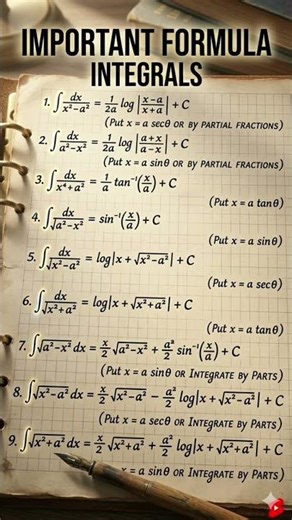 IMPORTANT FORMULA
INTEGRALS
1. ∫ dx/(x²-a²) = 1/2a log |(x-a)/(x+a)| + C
(Put x = a secθ OR BY PARTIAL FRACTIONS)
2. ∫ dx/(a²-x²) = 1/2a log |(a+x)/(a-x)| + C
(Put x = a sinθ OR BY PARTIAL FRACTIONS)
3. ∫ dx/(x⁴+a²) = 1/a tan⁻¹(x/a) + C
(Put x = a tanθ)
4. ∫ dx/√(a²-x²) = sin⁻¹(x/a) + C
(Put x = a sinθ)
5. ∫ dx/√(x²-a²) = log|x + √(x²-a²)| + C
(Put x = a secθ)
6. ∫ dx/√(x²+a²) = log|x + √(x²+a²)| + C
(Put x = a tanθ)
7. ∫√(a²-x²) dx = x/2 √(a²-x²) + a²/2 sin⁻¹(x/a) + C
(Put x = a sinθ OR INTEGRATE BY PARTS)
8. ∫√(x²-a²) dx = x/2 √(x²-a²) - a²/2 log|x + √(x²-a²)| + C
(Put x = a secθ OR INTEGRATE BY PARTS)
9. ∫√(x²+a²) dx = x/2 √(x²+a²) + a²/2 log|x + √(x²+a²)| + C
x = a sinθ OR INTEGRATE BY PARTS)